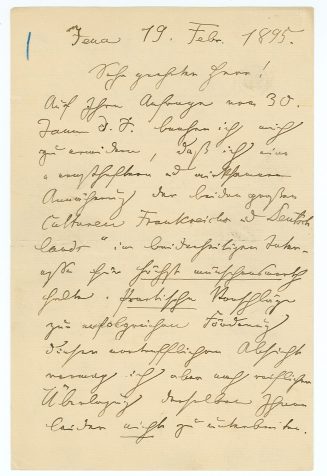 Jena 19. Febr. 1895.
Sehr geehrter Herr!
Auf Ihre Anfrage vom 30.
Januar d. J. beehre ich mich
zu erwidern, daß ich eine
„ernsthaftere und wirksamere
Annäherung der beiden großen
Culturen Frankreichs und Deutsch-
lands“ im beiderseitigen Inter-
esse für höchst wünschenswerth
halte. Practische Vorschläge
zur erfolgreichen Förderung
dieser vortrefflichen Absicht
vermag ich aber nach reiflicher
Überlegung derselben Ihnen
leider nicht zu unterbreiten.